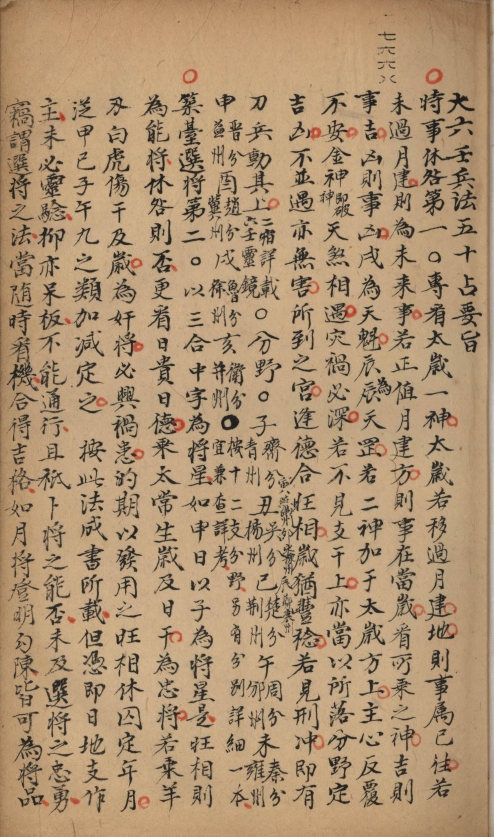 七六六八
大六壬兵法五十占要旨
時事休咎第一〇專看太歲一神太歲若移過月建地則事屬已往若
未過月建則為未來事若正值月建方則事在當歲看所乘之神吉則
事吉凶則事凶戌為天魁辰為天罡若二神加于太歲方上主心反覆
不安金神即破神天煞相遇灾禍必深若不見支干上亦當以所落分野定
吉凶不並遇亦無害所到之宮逢德合旺相歲猶豐稔若見刑冲即有
刀兵動其上二宿詳載六壬靈鏡〇分野〇子齊分青州丑吳分揚州巳楚分荆州午周分未秦分雍州
申晉分益州酉趙分冀州戌魯分徐州亥衛分并州按十二支分野另有分别詳細一本宜兼查詳考
築臺選將第二〇以三合中字為將星如申日以子為將星是旺相則
為能將休咎則否更看日貴日德乘太常生歲及日干為忠將若乘羊
刃白虎傷干及歲為奸將必興禍患的期以發用之旺相休囚定年月
泛甲己子午九之類加減定之 按此法成書所載但憑即日地支作
主未必靈驗抑亦呆板不能通行且祇卜將之能否未及選將之忠勇
竊謂選將之法當随時看機合得吉格如月將登明勾陳皆可為將品